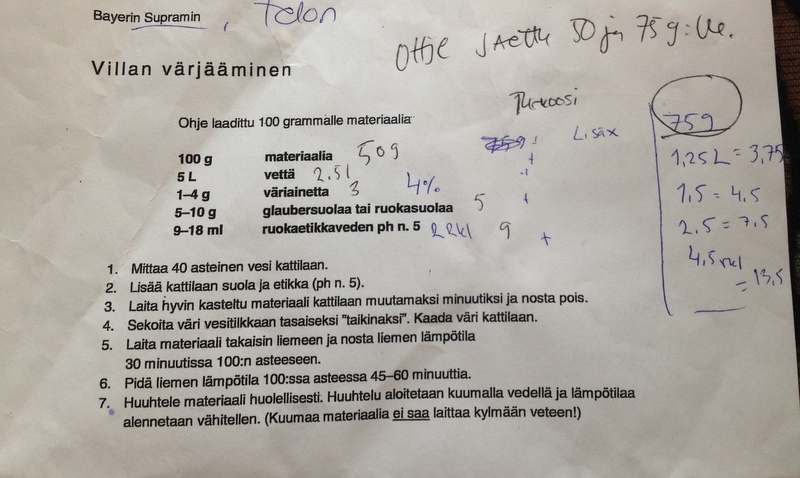 Bayerin Supramin, Telon
Ohje jaettu 50 ja 75 g:lle.
Villan värjääminen
Turkoosi
Ohje laadittu 100 grammalle materiaalia
Lisäx
75g
100 g materiaalia 50g
5 L vettä 2.5l
1–4 g väriainetta 3 4%
5–10 g glaubersuolaa tai ruokasuolaa 5
9–18 ml ruokaetikkaveden ph n. 5 9
1,25L = 3,75
1,5 = 4,5
2,5 = 7,5
4,5 rkl
= 13,5
1. Mittaa 40 asteinen vesi kattilaan.
2. Lisää kattilaan suola ja etikka (ph n. 5).
3. Laita hyvin kasteltu materiaali kattilaan muutamaksi minuutiksi ja nosta pois.
4. Sekoita väri vesitilkkaan tasaiseksi "taikinaksi". Kaada väri kattilaan.
5. Laita materiaali takaisin liemeen ja nosta liemen lämpötila
30 minuutissa 100:n asteeseen.
6. Pidä liemen lämpötila 100:ssa asteessa 45–60 minuuttia.
7. Huuhtele materiaali huolellisesti. Huuhtelu aloitetaan kuumalla vedellä ja lämpötilaa
alennetaan vähitellen. (Kuumaa materiaalia ei saa laittaa kylmään veteen!)